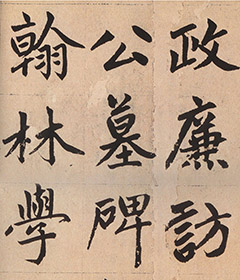 政廉訪
公墓碑
翰林學